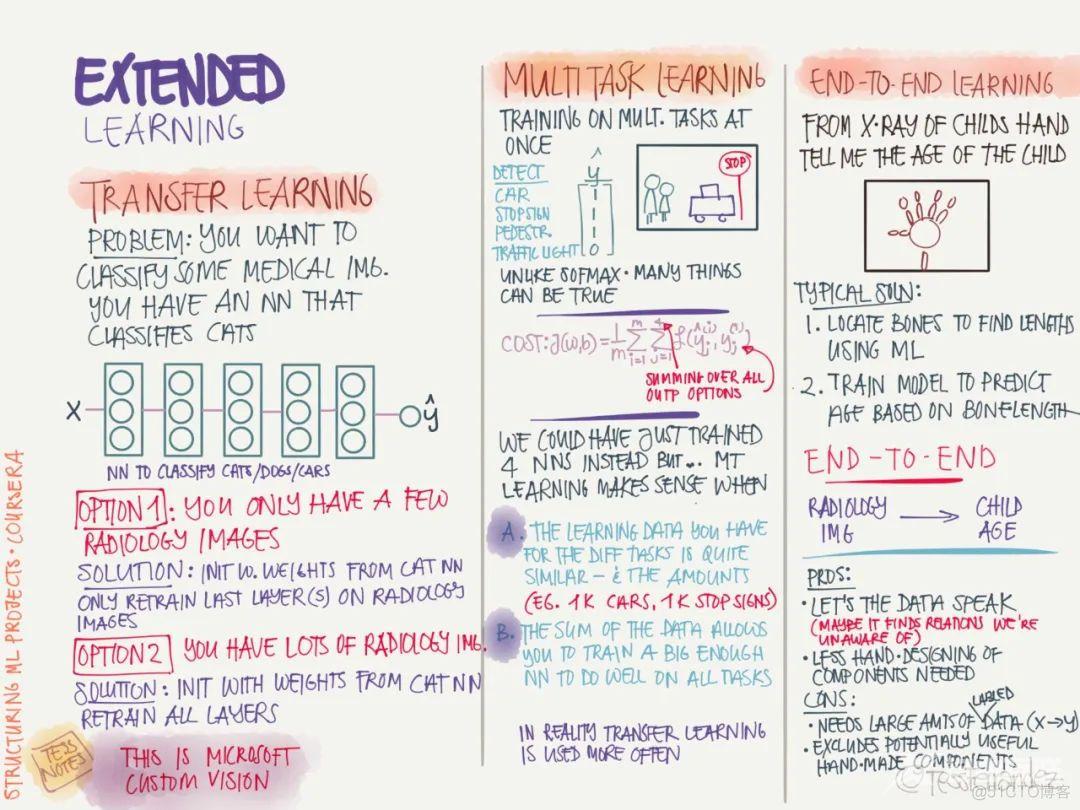 EXTENDED
LEARNING
TRANSFER LEARNING
PROBLEM: YOU WANT TO
CLASSIFY SOME MEDICAL IMG.
YOU HAVE AN NN THAT
CLASSIFIES CATS
X
ŷ
NN TO CLASSIFY CATS/DOGS/CARS
OPTION 1: YOU ONLY HAVE A FEW
RADIOLOGY IMAGES
SOLUTION: INIT W. WEIGHTS FROM CAT NN
ONLY RETRAIN LAST LAYER(S) ON RADIOLOGY
IMAGES
OPTION 2 YOU HAVE LOTS OF RADIOLOGY IMG.
SOLUTION: INIT WITH WEIGHTS FROM CAT NN
RETRAIN ALL LAYERS
THIS IS MICROSOFT
CUSTOM VISION
TESS
NOTES
STRUCTURING ML PROJECTS • COURSERA
MULTI TASK LEARNING
TRAINING ON MULT. TASKS AT
ONCE
DETECT
CAR
STOPSIGN
PEDESTR.
TRAFFIC LIGHT
ŷ
1
1
1
0
STOP
UNLIKE SOFMAX • MANY THINGS
CAN BE TRUE
COST: J(w,b) = 1/m Σ i=1 m Σ j=1 4 L(ŷj(i), yj(i))
SUMMING OVER ALL
OUTP OPTIONS
WE COULD HAVE JUST TRAINED
4 NNS INSTEAD BUT... MT
LEARNING MAKES SENSE WHEN
A. THE LEARNING DATA YOU HAVE
FOR THE DIFF TASKS IS QUITE
SIMILAR - & THE AMOUNTS
(EG. 1K CARS, 1K STOP SIGNS)
B. THE SUM OF THE DATA ALLOWS
YOU TO TRAIN A BIG ENOUGH
NN TO DO WELL ON ALL TASKS
IN REALITY TRANSFER LEARNING
IS USED MORE OFTEN
END-TO-END LEARNING
FROM X-RAY OF CHILDS HAND
TELL ME THE AGE OF THE CHILD
TYPICAL SOLN:
1. LOCATE BONES TO FIND LENGTHS
USING ML
2. TRAIN MODEL TO PREDICT
AGE BASED ON BONELENGTH
END-TO-END
RADIOLOGY → CHILD
IMG AGE
PROS:
• LET'S THE DATA SPEAK
(MAYBE IT FINDS RELATIONS WE'RE
UNAWARE OF)
• LESS HAND-DESIGNING OF
COMPONENTS NEEDED
CONS:
LABLED
• NEEDS LARGE AMTS OF DATA (X→Y)
• EXCLUDES POTENTIALLY USEFUL
HAND-MADE COMPONENTS
@TessFerrandez
@51CTO博客